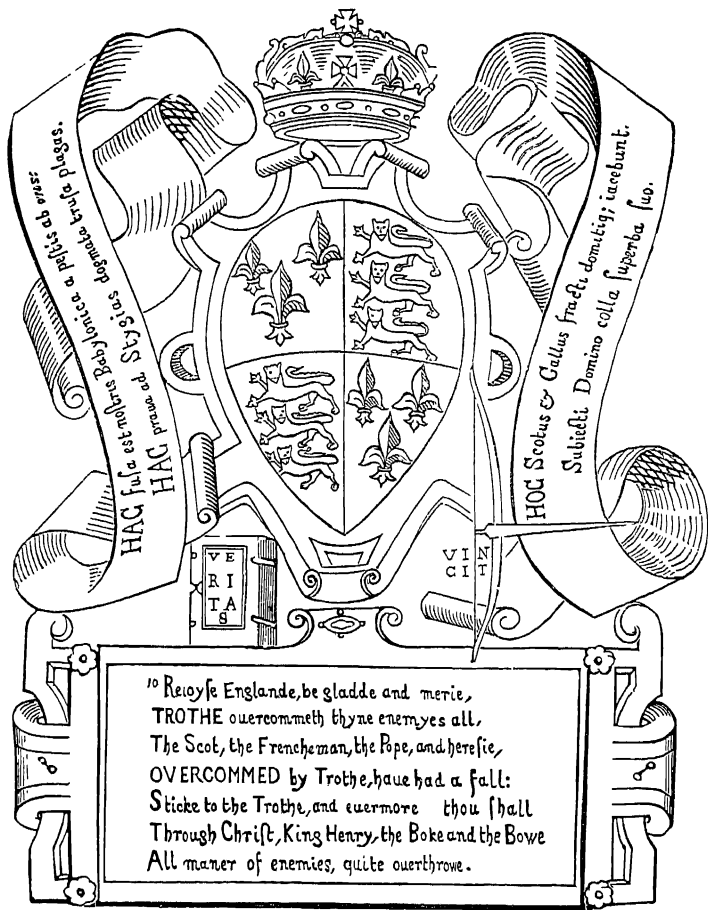 HAC fuſa est noſtris Babylonica a peſtis ab oris:
HAC praua ad Stygias dogmata truſa plagas.
HOC Scotus & Gallus fracti domitiq; iacebunt.
Subiecti Domino colla ſuperba ſuo.
VE
RI
TA
S
VIN
CIT
Reioyſe Englande, be gladde and merie,
TROTHE ouercommeth thyne enemyes all,
The Scot, the Frencheman, the Pope, and hereſie,
OVERCOMMED by Trothe, haue had a fall:
Sticke to the Trothe, and euermore thou ſhall
Through Chriſt, King Henry, the Boke and the Bowe
All maner of enemies, quite ouerthrowe.